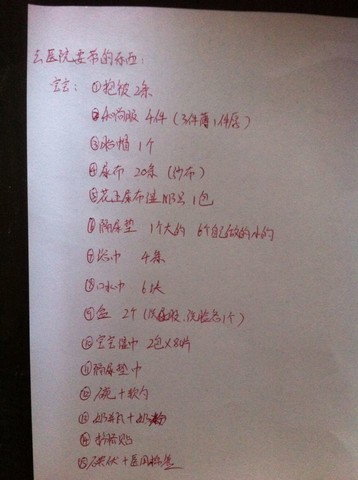 去医院要带的东西：
宝宝：①抱被 2条
②和尚服 4件（3件薄1件厚）
③胎帽 1个
④尿布 20条（纱布）
⑤花王尿布湿 NB号 1包
⑥隔尿垫 1个大的 6个自己做的小的
⑦浴巾 4条
⑧口水巾 6块
⑨盆 2个（洗屁股、洗脸各1个）
⑩宝宝湿巾 2包×80片
⑪隔尿垫巾
⑫碗+软勺
⑬奶瓶+奶粉
⑭护脐贴
⑮碘伏+医用棉签